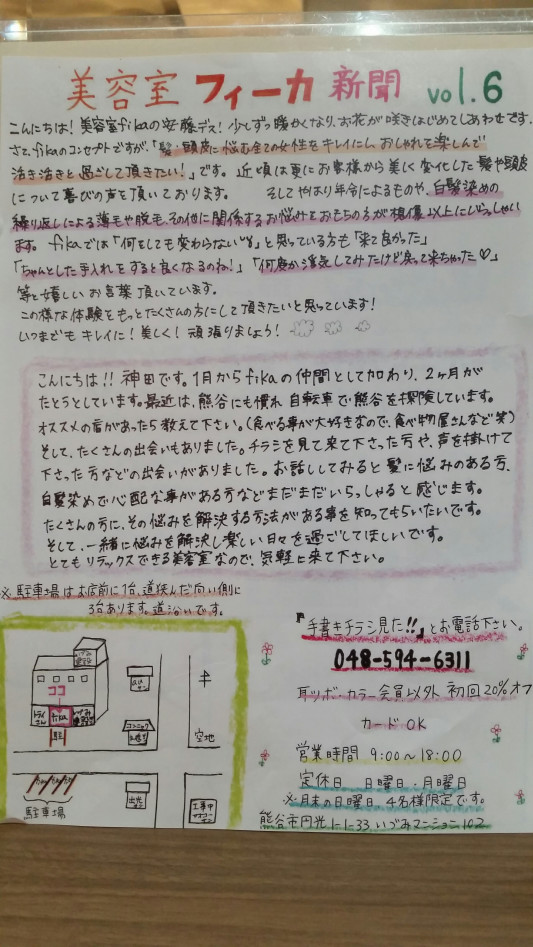 美容室 フィーカ 新聞 vol.6
こんにちは！美容室fikaの安藤デス！少しずつ暖かくなり、お花が咲きはじめてしあわせです。
さて、fikaのコンセプトですが、「髪・頭皮に悩む全ての女性をキレイにし、おしゃれを楽しんで
活き活きと過ごして頂きたい！」です。近頃は更にお客様から美しく変化した髪や頭皮
について喜びの声を頂いております。 そしてやはり年令によるものや、白髪染めの
繰り返しによる薄毛や脱毛、その他に関係するお悩みをおもちの方が想像以上にいらっしゃい
ます。fikaでは「何をしても変わらない」と思っている方も「来て良かった」
「ちゃんとした手入れをすると良くなるのね！」「何度か浮気してみたけど戻って来ちゃった♡」
等と嬉しいお言葉頂いています。
この様な体験をもっとたくさんの方にして頂きたいと思っています！
いつまでもキレイに！美しく！頑張りましょう！
こんにちは!! 神田です。1月からfikaの仲間として加わり、2ヶ月が
たとうとしています。最近は、熊谷にも慣れ自転車で熊谷を探険しています。
オススメの店があったら教えて下さい。(食べる事が大好きなので、食べ物屋さんなど笑)
そして、たくさんの出会いもありました。チラシを見て来て下さった方や、声を掛けて
下さった方などの出会いがありました。お話ししてみると髪に悩みのある方、
白髪染めで心配な事がある方などまだまだいらっしゃると感じます。
たくさんの方に、その悩みを解決する方法がある事を知ってもらいたいです。
そして、一緒に悩みを解決し楽しい日々を過ごしてほしいです。
とてもリラックスできる美容室なので、気軽に来て下さい。
※駐車場はお店前に1台、道挟んだ向い側に
3台あります。道沿いです。
ココ
fika
駐
駐車場
auさん
出光さん
空地
工事中
『手書きチラシ見た!!』とお電話下さい。
048-594-6311
耳ツボ・カラー会員以外 初回20%オフ
カードOK
営業時間 9:00〜18:00
定休日 日曜日・月曜日
※月末の日曜日、4名様限定です。
熊谷市円光1-1-33 いづみマンション102